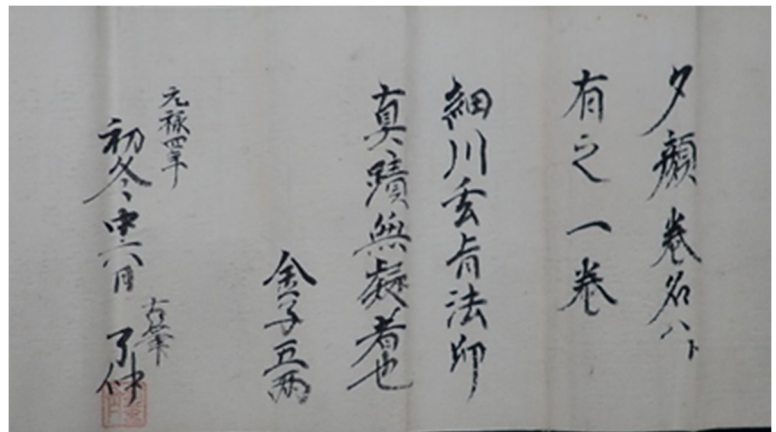 夕顔巻名ハト
有之一巻
細川玄旨法印
真蹟無疑者也
金子五両
元禄四年
初冬中六日
古筆
了仲